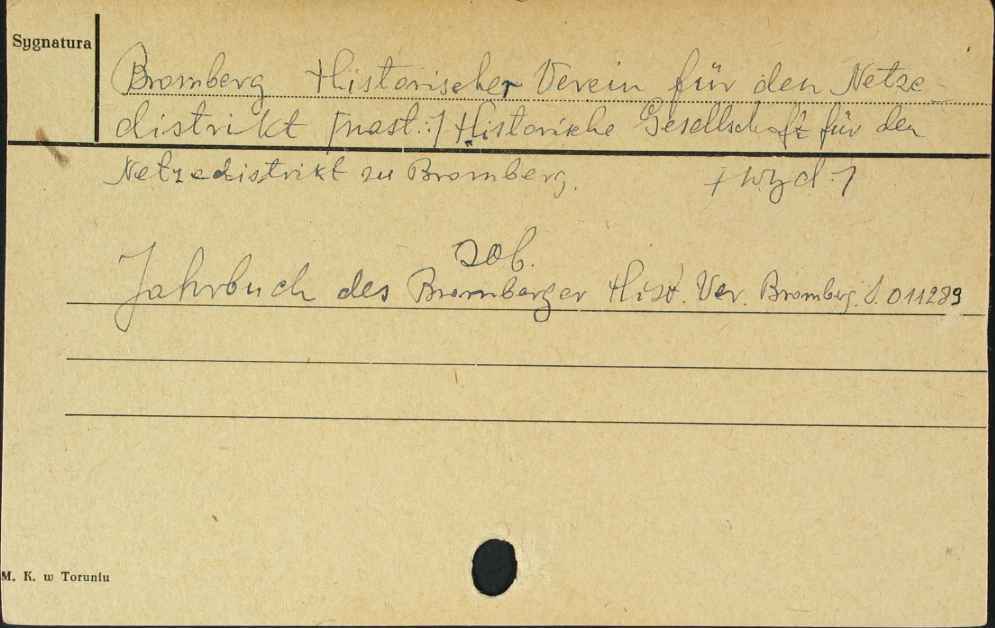 Sygnatura
Bromberg Historischer Verein für den Netze-
distrikt [nast.:] Historische Gesellschaft für den
Netzedistrikt zu Bromberg. [wyd.]
zob.
Jahrbuch des Bromberger Hist. Ver. Bromberg. S. 011289
M. K. w Toruniu